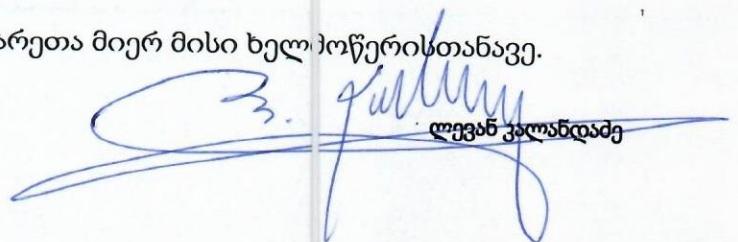 არეთა მიერ მისი ხელმოწერისთანავე.
ლევან კალანდაძე